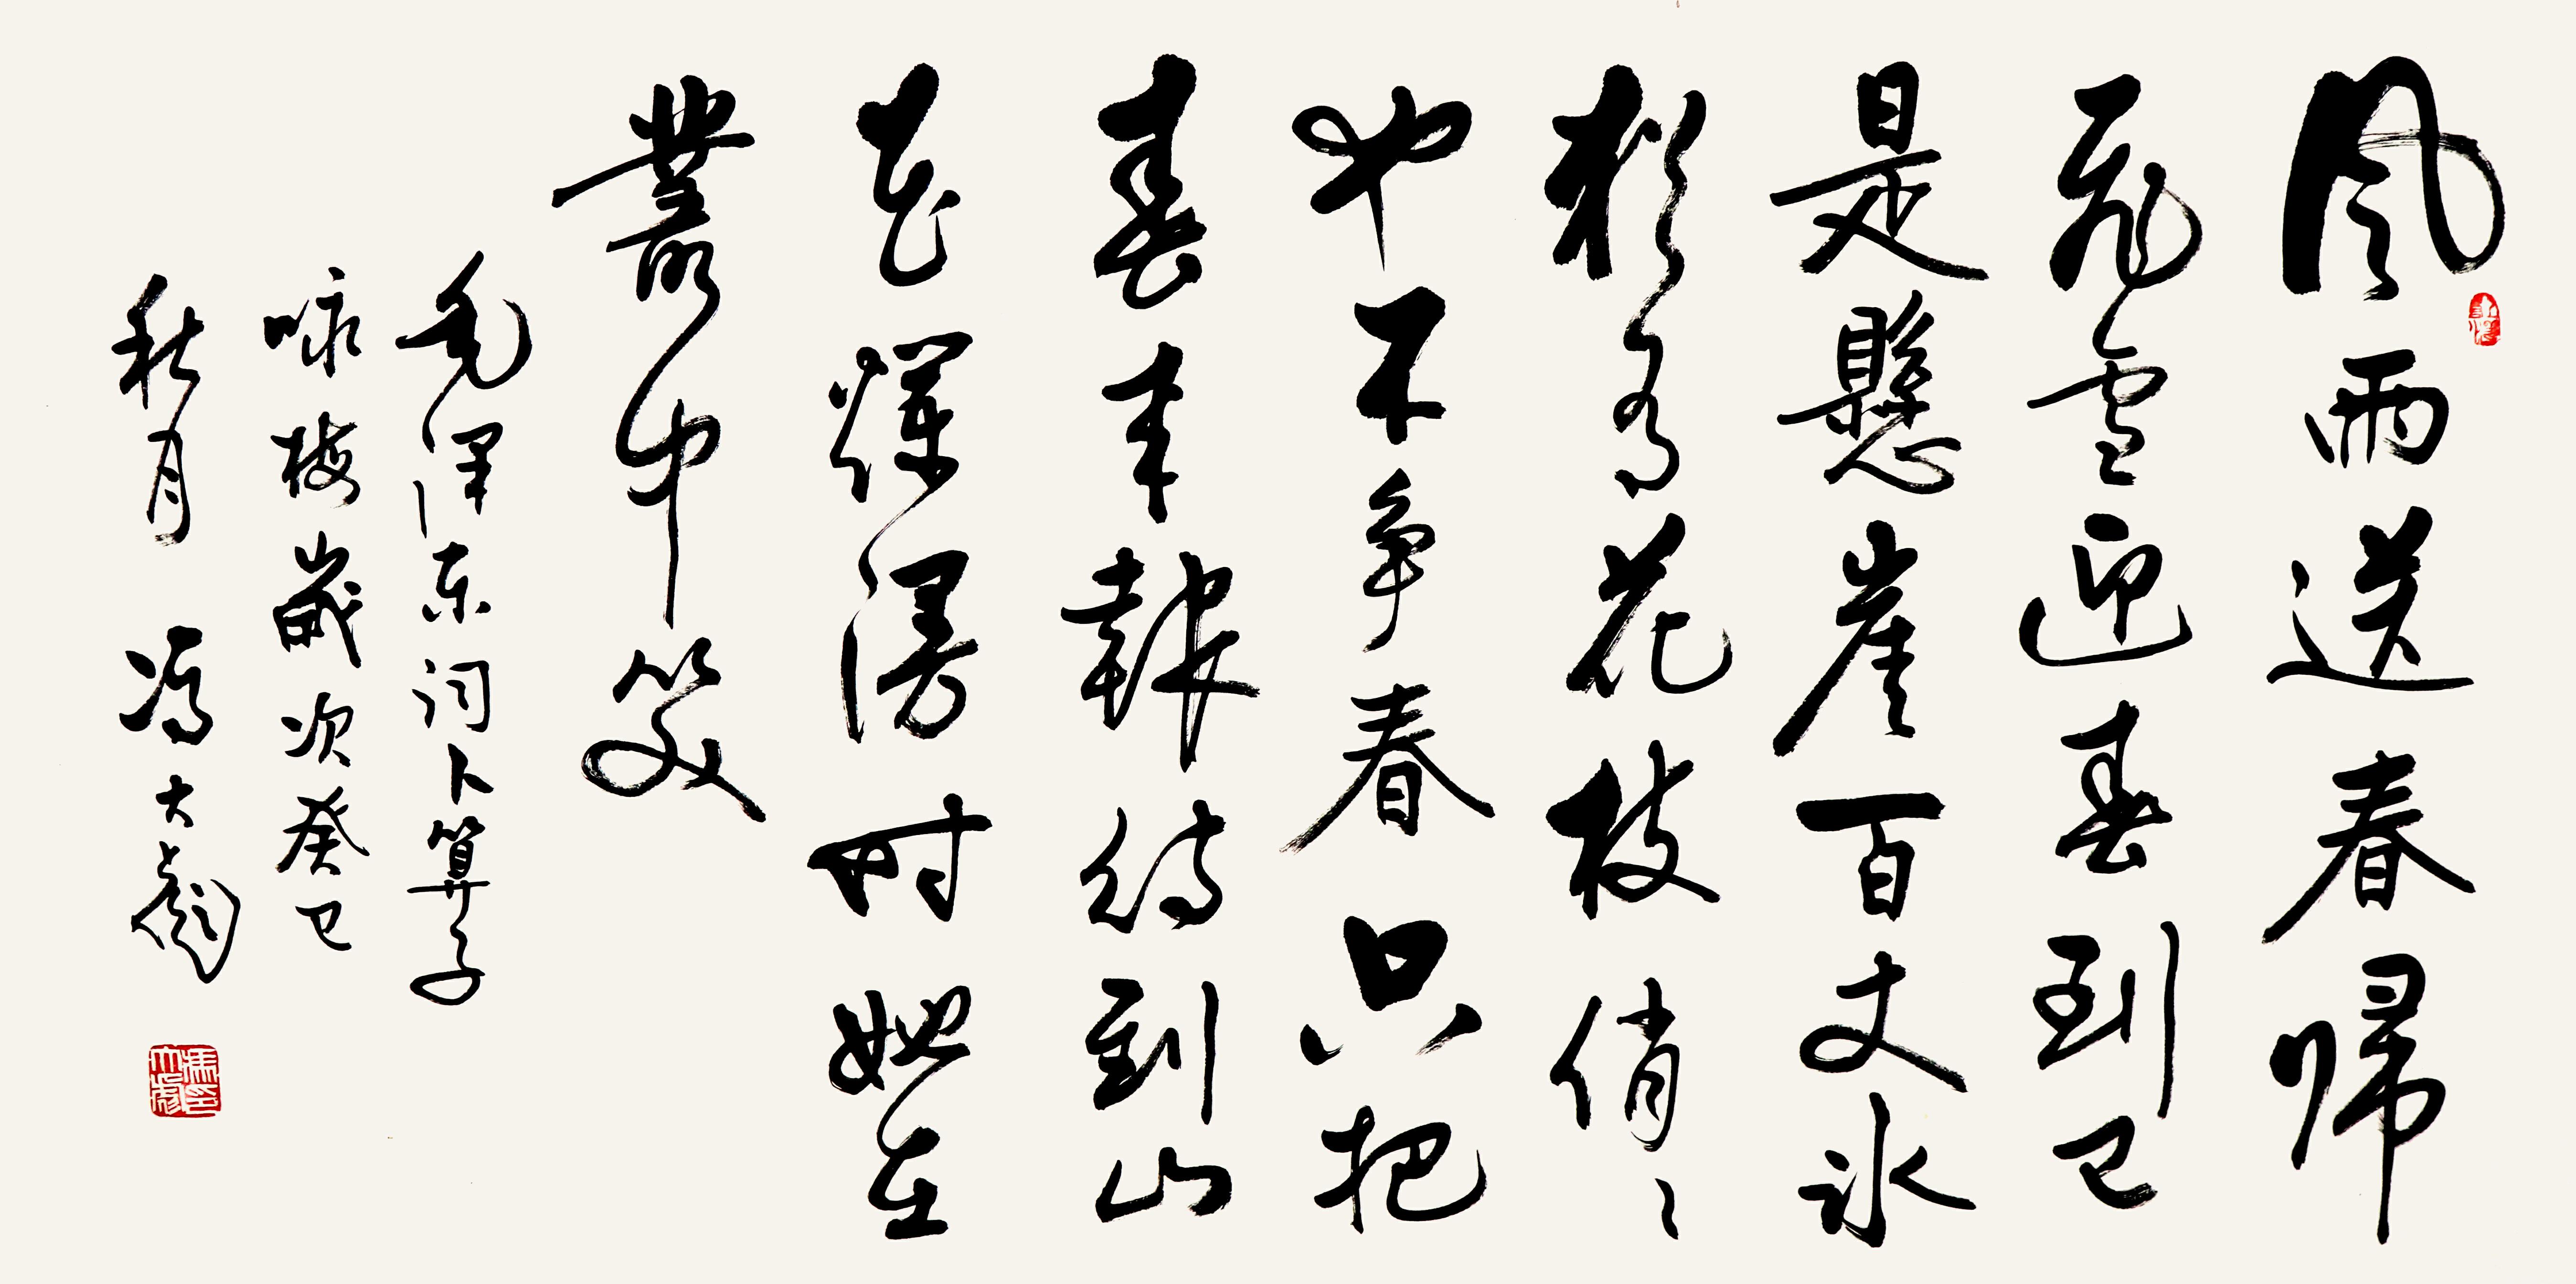 風雨送春帰
飛雪迎春到已
是懸崖百丈冰
猶有花枝俏々
也不争春只把
春来報待到山
花爛漫时她在
叢中笑
毛泽东词卜算子
咏梅歲次癸巳
秋月 冯大彪
馮印大彪